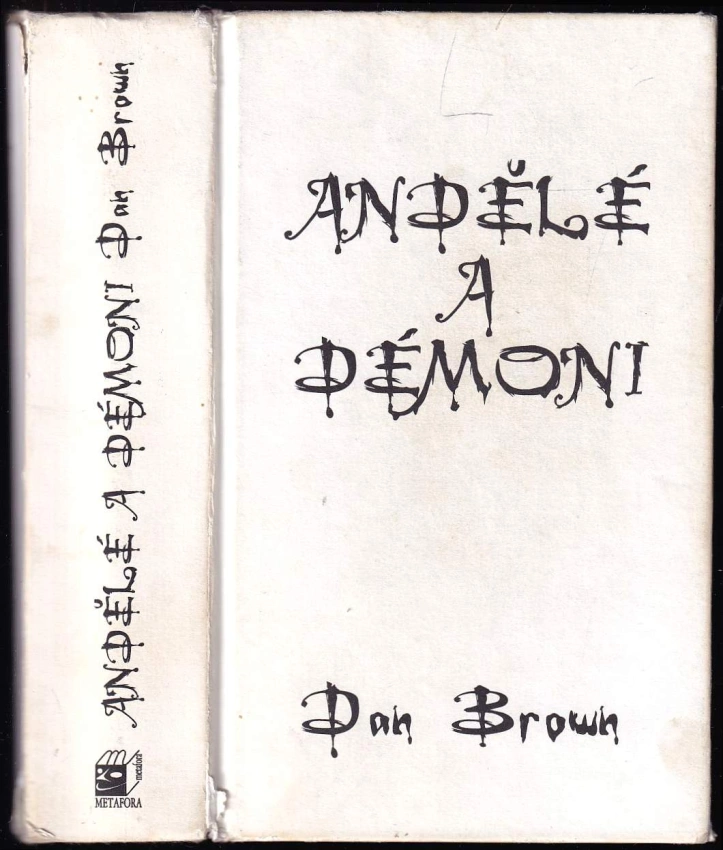 ANDĚLÉ A DÉMONI Dan Brown
metafora
METAFORA
ANDĚLÉ
A
DÉMONI
Dan Brown